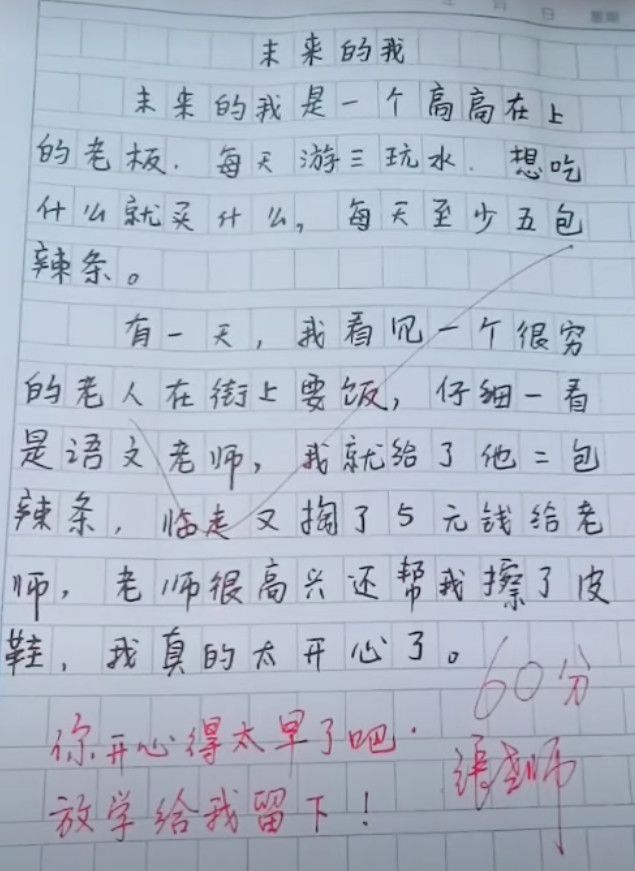 未来的我
未来的我是一个高高在上
的老板.每天游三玩水.想吃
什么就买什么,每天至少五包
辣条。
有一天,我看见一个很穷
的老人在街上要饭,仔细一看
是语文老师,我就给了他二包
辣条,临走又掏了5元钱给老
师,老师很高兴还帮我擦了皮
鞋,我真的太开心了。
60分
你开心得太早了吧.
放学给我留下!
張老师